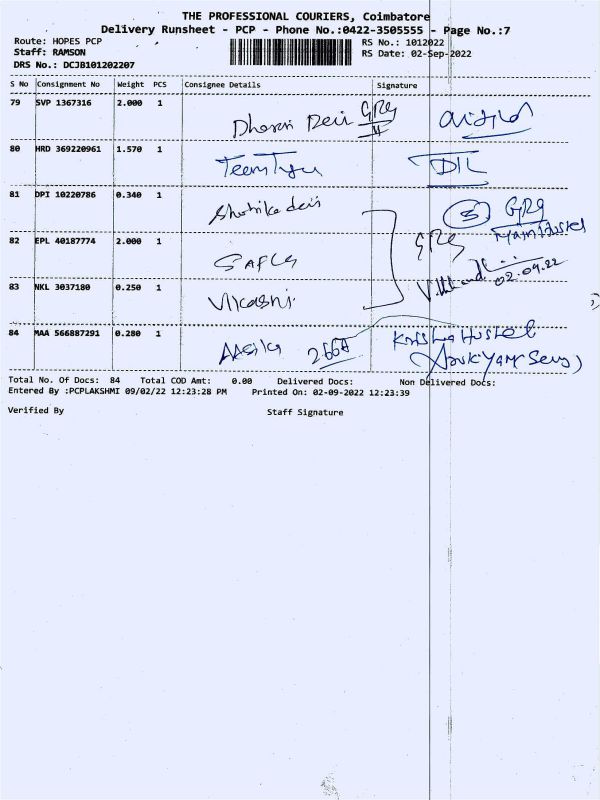 THE PROFESSIONAL COURIERS, Coimbatore
Delivery Runsheet - PCP - Phone No.:0422-3505555 - Page No.:7
Route: HOPES PCP
RS No.: 1012022
Staff: RAMSON
RS Date: 02-Sep-2022
DRS No.: DCJB101202207
S No Consignment No Weight PCS Consignee Details Signature
79 SVP 1367316 2.000 1 Dharani Devi GRG
80 HRD 369220961 1.570 1
81 DPI 10220786 0.340 1 devi 3 GRG
82 EPL 40187774 2.000 1 GRG Main Hostel
02.09.22
83 NKL 3037180 0.250 1 Vikashi
84 MAA 566887291 0.280 1 Aasika 266A Krishna Hostel
Total No. Of Docs: 84 Total COD Amt: 0.00 Delivered Docs: Non Delivered Docs:
Entered By :PCPLAKSHMI 09/02/22 12:23:28 PM Printed On: 02-09-2022 12:23:39
Verified By Staff Signature